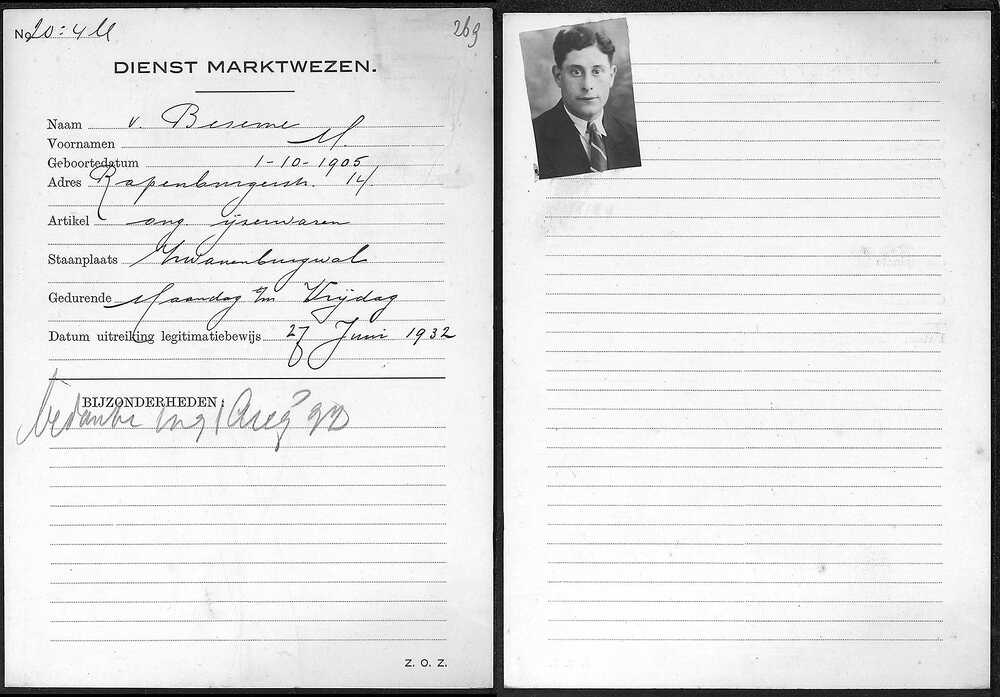 No 20:4 M
269
DIENST MARKTWEZEN.
Naam v. Beseme
Voornamen M.
Geboortedatum 1-10-1905
Adres Rapenburgerstr. 14
Artikel ong. ijserwaren
Staanplaats Zwanenburgwal
Gedurende Maandag t/m Vrijdag
Datum uitreiking legitimatiebewijs 27 Juni 1932
BIJZONDERHEDEN:
bedankt ing 1 Aug
Z. O. Z.